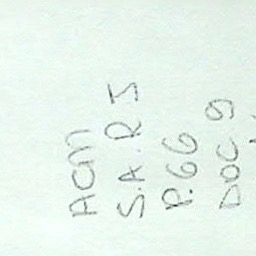 ACM
S.A.R.I
P.66
DOC 9